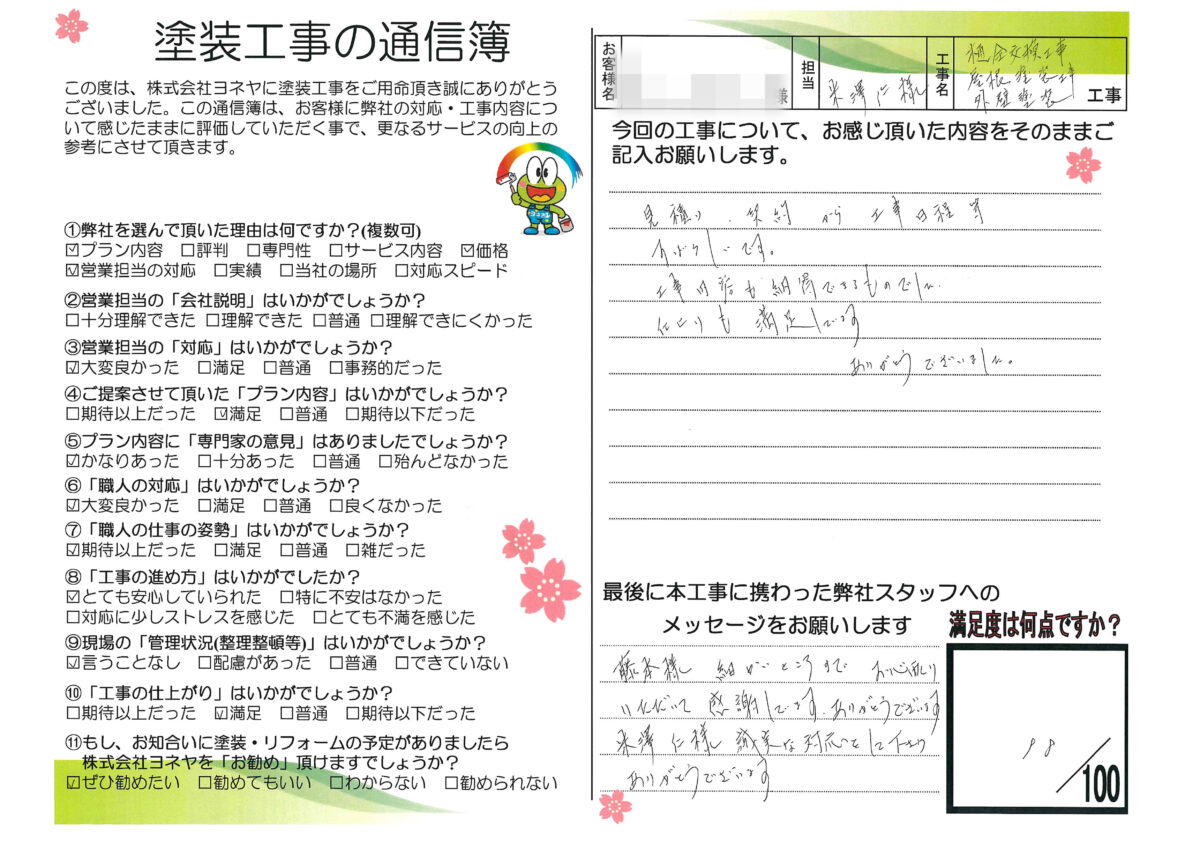 塗装工事の通信簿
この度は、株式会社ヨネヤに塗装工事をご用命頂き誠にありがとう
ございました。この通信簿は、お客様に弊社の対応・工事内容につ
いて感じたままに評価していただく事で、更なるサービスの向上の
参考にさせて頂きます。
①弊社を選んで頂いた理由は何ですか?(複数可)
☑プラン内容 □評判 □専門性 □サービス内容 ☑価格
☑営業担当の対応 □実績 □当社の場所 □対応スピード
②営業担当の「会社説明」はいかがでしょうか?
□十分理解できた □理解できた □普通 □理解できにくかった
③営業担当の「対応」はいかがでしょうか?
☑大変良かった □満足 □普通 □事務的だった
④ご提案させて頂いた「プラン内容」はいかがでしょうか?
□期待以上だった ☑満足 □普通 □期待以下だった
⑤プラン内容に「専門家の意見」はありましたでしょうか?
☑かなりあった □十分あった □普通 □殆んどなかった
⑥「職人の対応」はいかがでしょうか?
☑大変良かった □満足 □普通 □良くなかった
⑦「職人の仕事の姿勢」はいかがでしょうか?
☑期待以上だった □満足 □普通 □雑だった
⑧「工事の進め方」はいかがでしたか?
☑とても安心していられた □特に不安はなかった
□対応に少しストレスを感じた □とても不満を感じた
⑨現場の「管理状況(整理整頓等)」はいかがでしょうか?
☑言うことなし □配慮があった □普通 □できていない
⑩「工事の仕上がり」はいかがでしょうか?
□期待以上だった ☑満足 □普通 □期待以下だった
⑪もし、お知合いに塗装・リフォームの予定がありましたら
株式会社ヨネヤを「お勧め」頂けますでしょうか?
☑ぜひ勧めたい □勧めてもいい □わからない □勧められない
お客様名 様 担当 米澤仁様 工事名 樋全交換工事
屋根塗装工事
外壁塗装 工事
今回の工事について、お感じ頂いた内容をそのままご
記入お願いします。
見積り、契約から工事日程等
すばらしいです。
工事内容も納得できるものでした。
仕上りも満足しています
ありがとうございました。
最後に本工事に携わった弊社スタッフへの
メッセージをお願いします
藤本様 細かいところまでお心配り
いただいて感謝しています。ありがとうございます
米澤仁様 誠実な対応をして下さり
ありがとうございます
満足度は何点ですか?
98/100